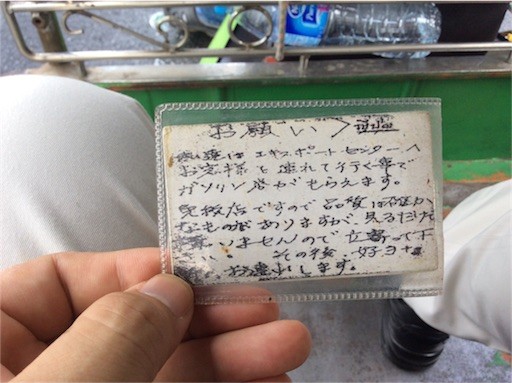 お願い
私達はエキスポートセンターへ
お客様を連れて行く事で
ガソリン券がもらえます。
免税店ですので品質は確か
なものがありますが、見るだけで
いませんので立寄って下
その後 好き
お連れします。